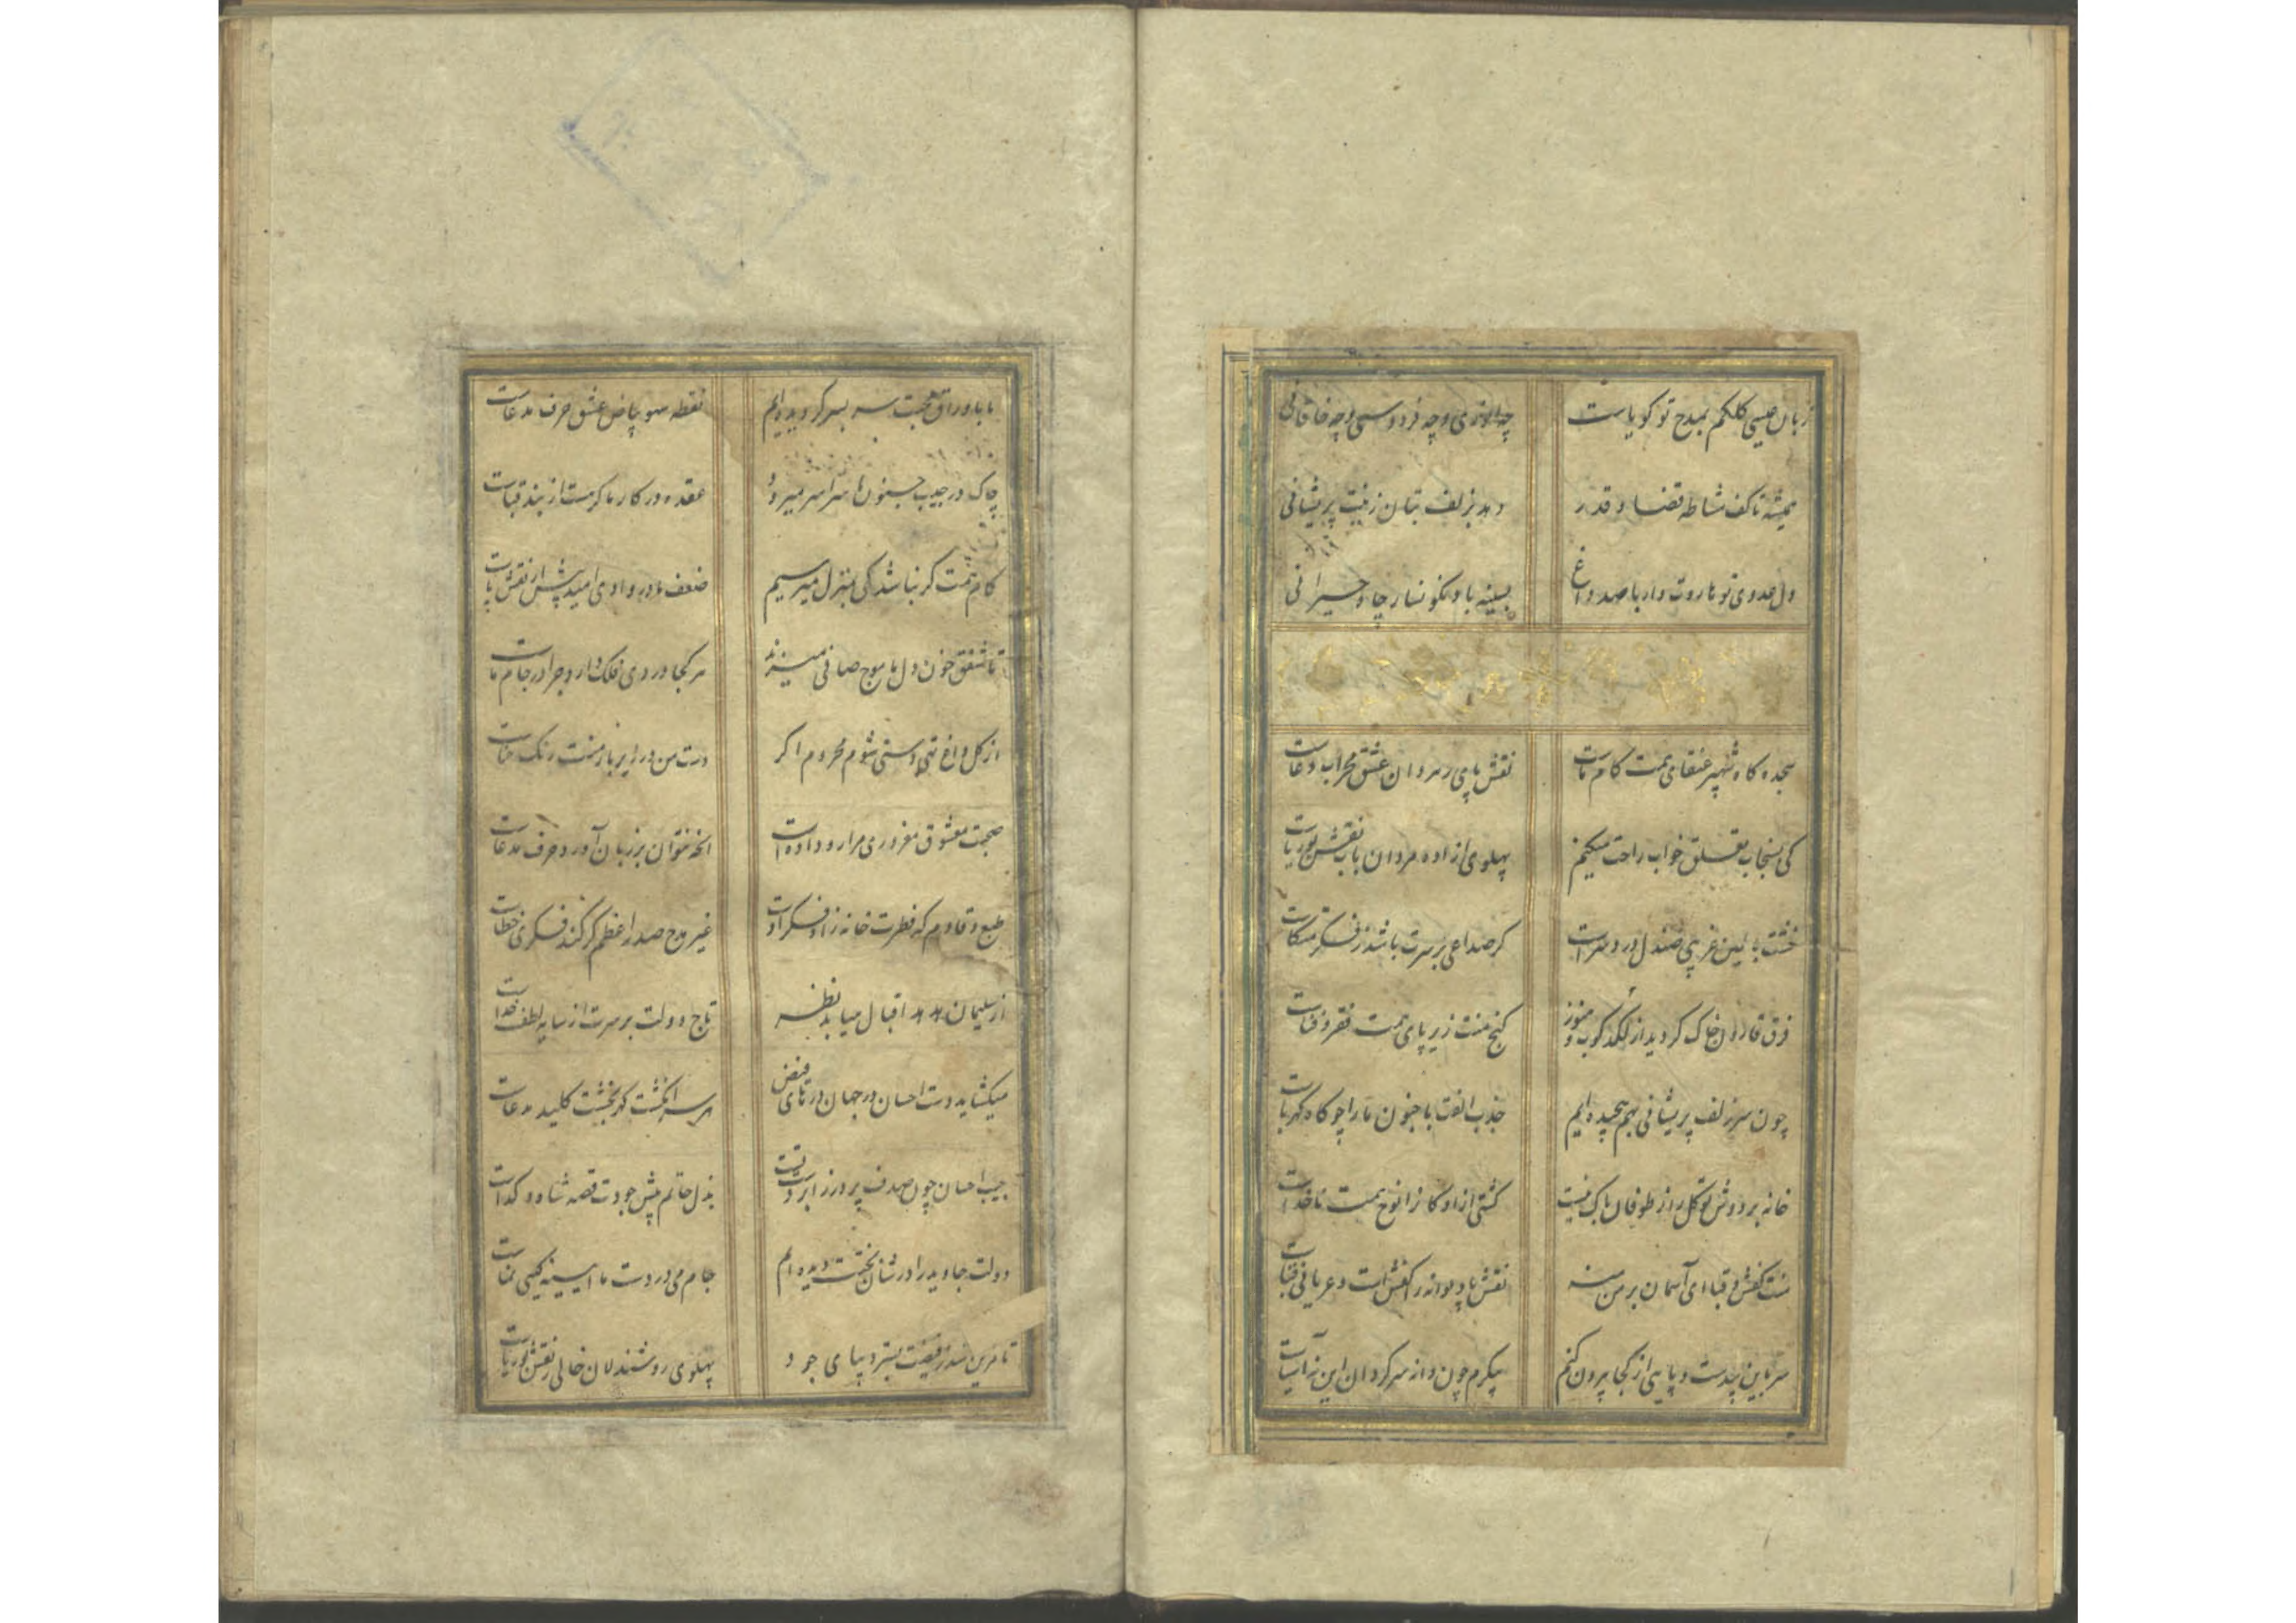 زبان عیسی کلکم بمدح تو کویاست چه انوری و چه فردوسی و چه خاقانی
همیشه تا کف مشاطه قضا و قدر دهد بزلف بتان زینت پریشانی
دل عدوی تو هاروت وار با صد داغ بسینه باد نکونسار چاه حیرانی
سجده کاه شهپر عنقای همت کام ماست نقش پای رهروان عشق محراب دعاست
کی بسنجاب تعلق خواب راحت میکنم پهلوی ازاده مردان باب نقش بوریاست
خشت بالین غریبی صندل درد سراست کر صداعی بر سرت باشد ز فکر متکاست
فرق قارون خاک کردید از لکدکوب و هنوز کنج منت زیر پای همت فقر و فناست
چون سر زلف پریشانی بهم پیچیده ایم جذب الفت با جنون ما را چو کاه کهرباست
خانه بر دوش توکل را ز طوفان باک نیست کشتی ازادکانرا نوح همت ناخداست
منت کفش و قبا ای آسمان بر من منه نقش پا دیوانه را کفش است و عریانی قباست
سر باین بیدست و پایی از کجا بیرون کنم پیکرم چون دانه سرکردان این نه آسیاست
ما باوراق محبت سر بسر کردیده ایم نقطه سهو بیاض عشق حرف مدعاست
چاک در جیب جنون ما سراسر میرود عقده در کار ما کر هست از بند قباست
کام همت کر نباشد کی بمنزل میرسیم ضعف ما در وادی امید پیش از نقش پاست
تا شفق خون دل ما موج صافی میزند هر کجا دردی فلک دارد چرا در جام ماست
از کل داغ تهی دستی شوم محروم اکر دست من در زیر بار منت رنک حناست
صحبت معشوق مغروری مرا رو داده است انکه نتوان بر زبان آورد حرف مدعاست
طبع وقادم که فطرت خانه زاد فکر اوست غیر مدح صدر اعظم کر کند فکری خطاست
از سلیمان هدهد اقبال میابد نظر تاج دولت بر سرت از سایه لطف خداست
میکشاید دست احسان در جهان درهای فیض هر سر انکشت کهربخشت کلید مدعاست
جیب احسان چون صدف پر درز ابر دست تست بذل حاتم پیش جودت قصه شاه و کداست
دولت جاوید را در شان بختت دیده ایم جام می در دست ما آیینه کیتی نماست
پهلوی روشندلان خالی ز نقش بوریاست